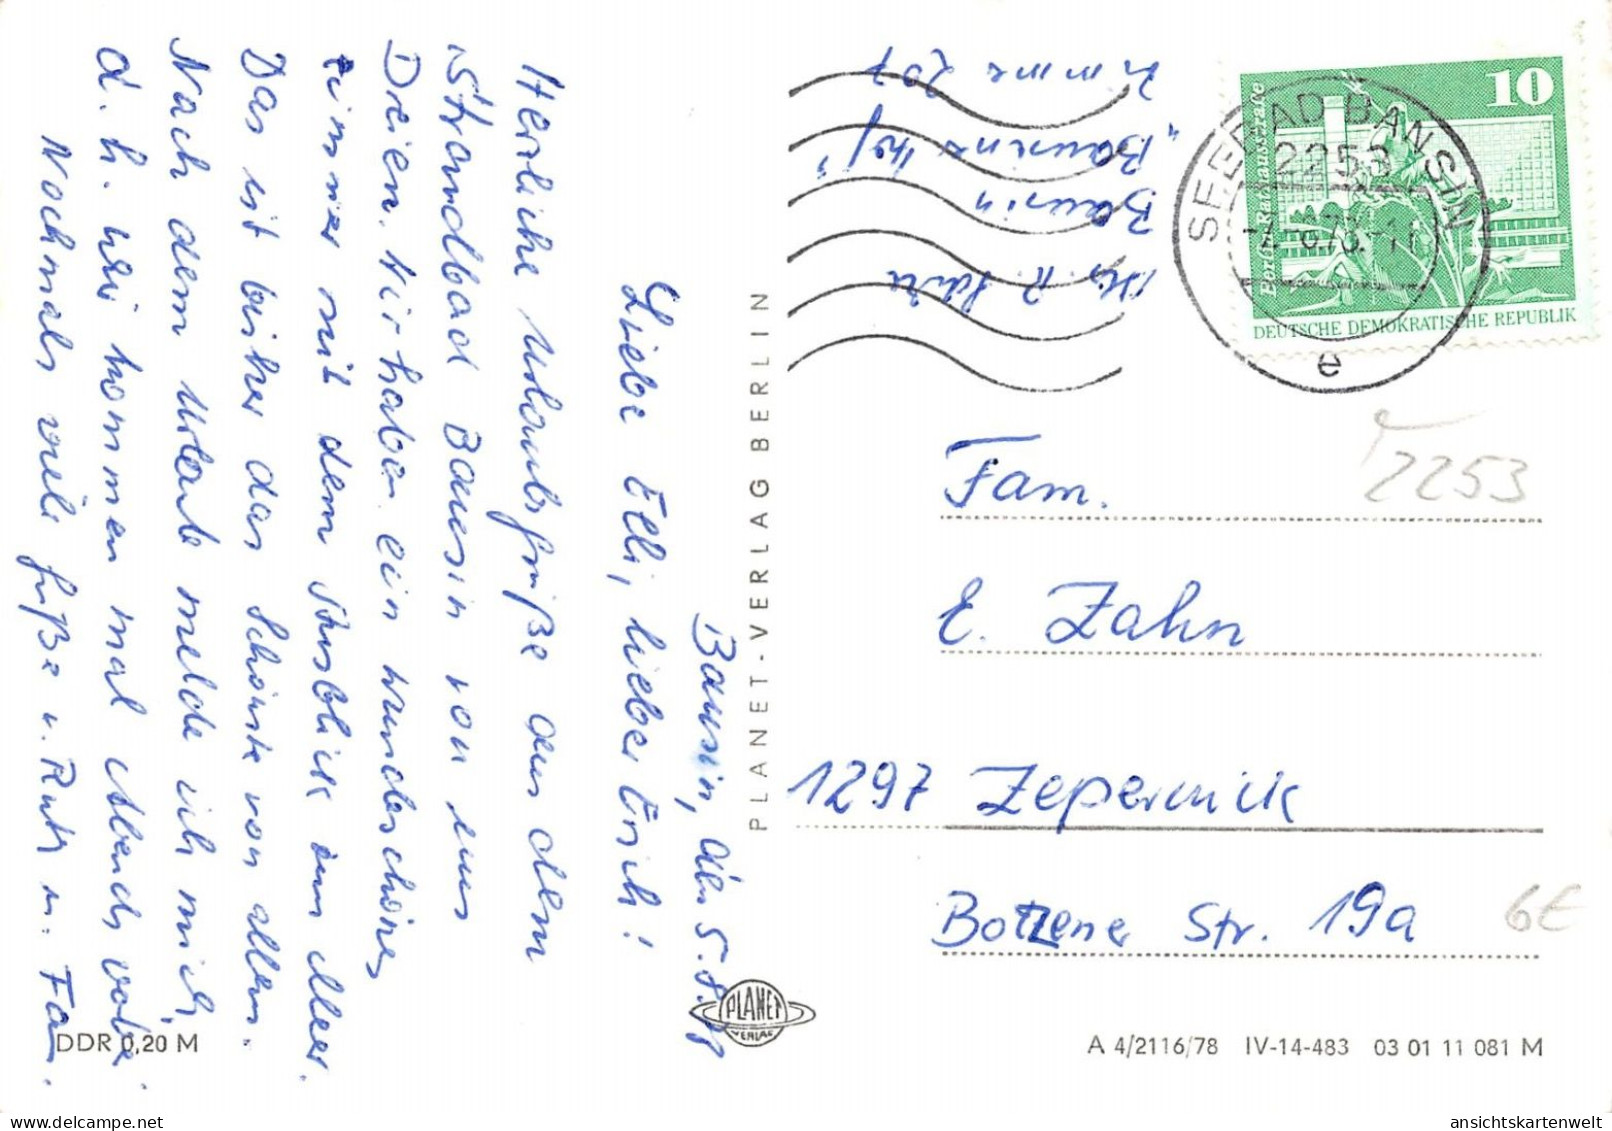 Bansin, den 5.8.78
Liebe Elli, lieber Erich!
Herzliche Urlaubsgrüße aus dem
Strandbad Bansin von uns
Dreien. Wir haben ein wunderschönes
Zimmer mit dem Ausblick zum Meer.
Das ist bisher das Schönste von allem.
Nach dem Urlaub melde ich mich,
d.h. wir kommen mal Abends vorbei.
Nochmals viele Grüße u. Ruth u. Fam.
DDR 0,20 M
PLANET-VERLAG BERLIN
PLANET
VERLAG
R.
Bansin
"Bansiner Hof"
Zimmer 207
10
Berlin, Rathausstraße
DEUTSCHE DEMOKRATISCHE REPUBLIK
SEEBAD BANSIN
2253
e
2253
Fam.
E. Zahn
1297 Zepernick
Botzener Str. 19a
6E
A 4/2116/78 IV-14-483 03 01 11 081 M
ansichtskartenwelt